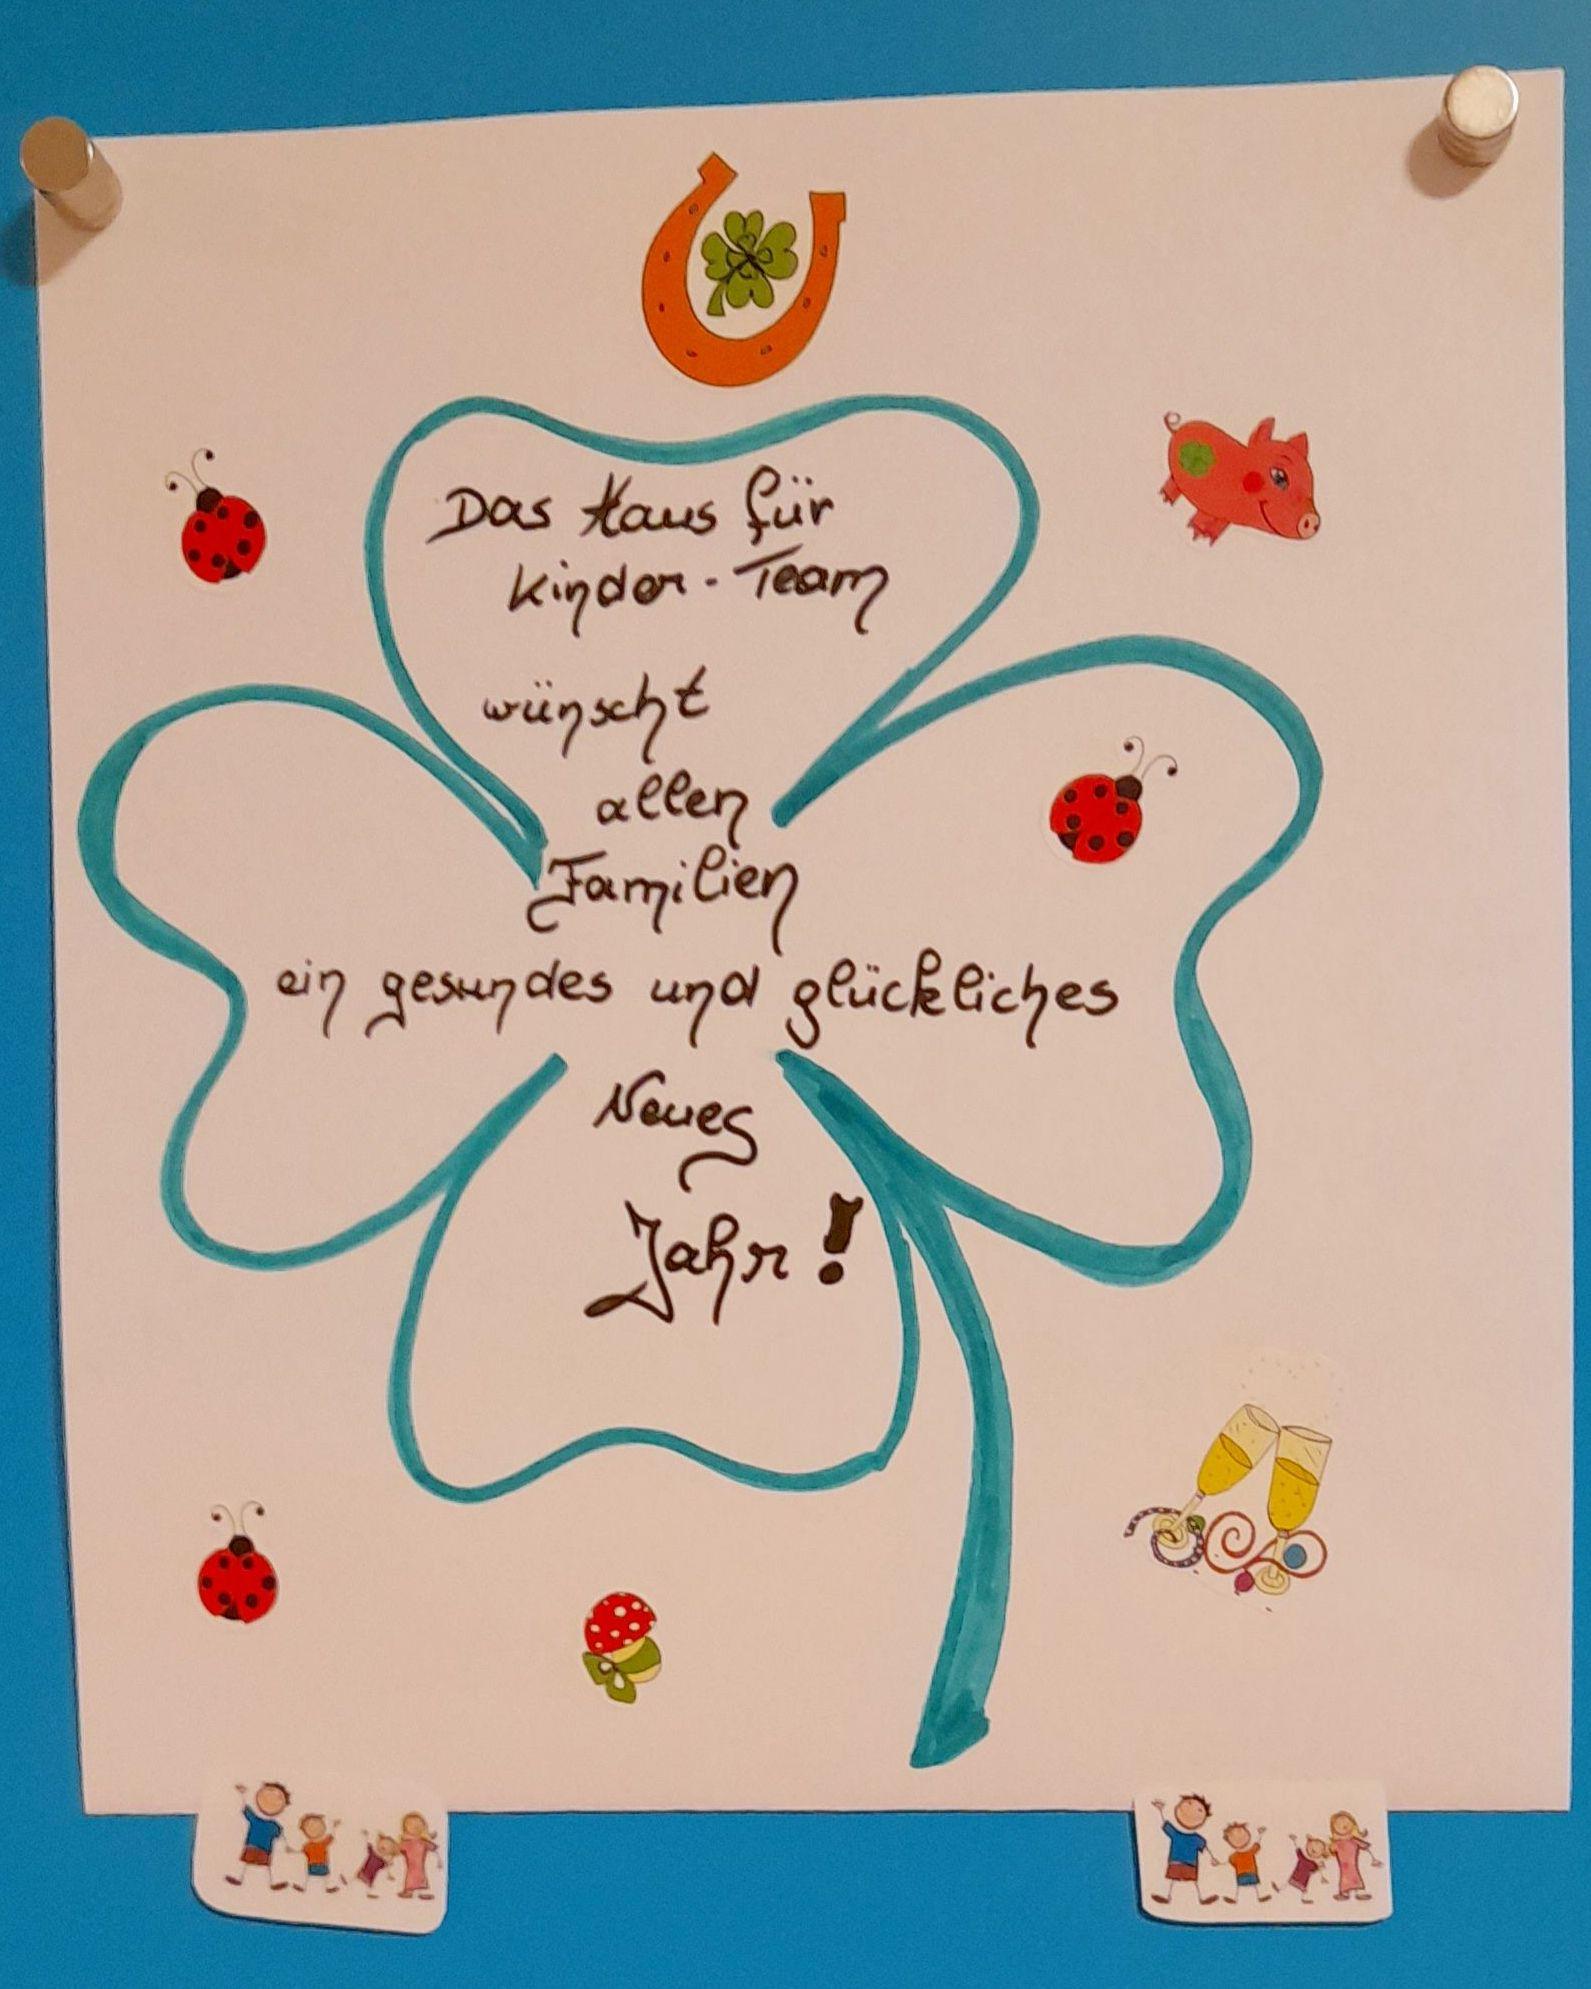 Das Haus für
Kinder-Team
wünscht
allen
Familien
ein gesundes und glückliches
Neues
Jahr!